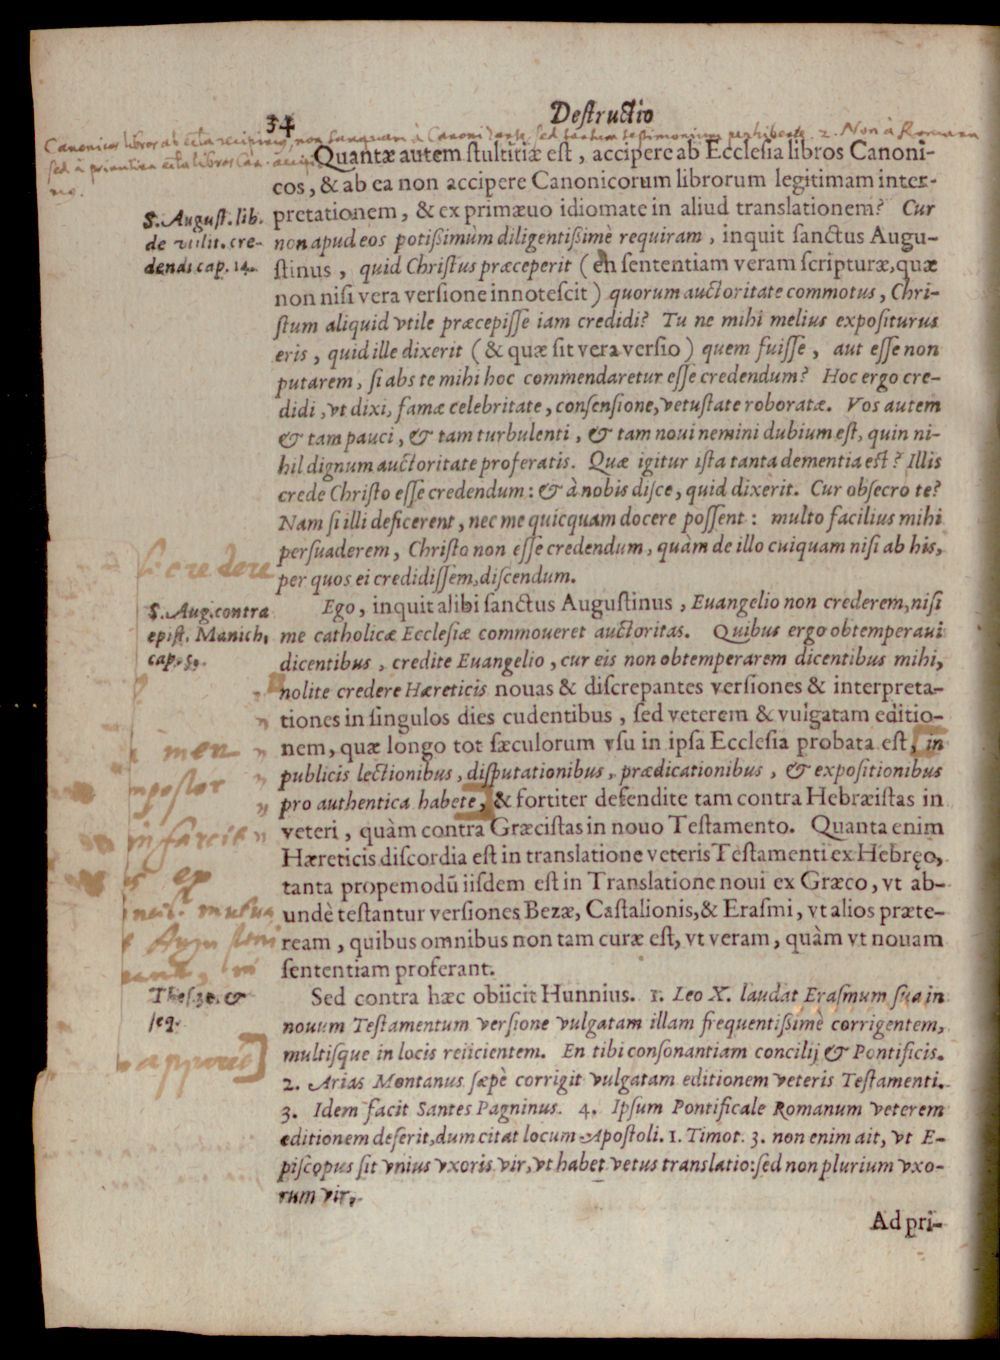 34
Destructio
Canonicos libros ab eccla recipimus, non tanquam à Canonizante, sed tantum testimonium perhibente. 2. Non à Romana
sed à primitiva eccla libros Can. accipi-
mus.
Quantæ autem stultitiæ est, accipere ab Ecclesia libros Canoni-
cos, & ab ea non accipere Canonicorum librorum legitimam inter-
pretationem, & ex primæuo idiomate in aliud translationem? Cur
S. August. lib.
de vtilit. cre-
dendi cap. 14.
non apud eos potißimùm diligentißimè requiram, inquit sanctus Augu-
stinus, quid Christus præceperit (en sententiam veram scripturæ, quæ
non nisi vera versione innotescit) quorum auctoritate commotus, Chri-
stum aliquid vtile præcepisse iam credidi? Tu ne mihi melius expositurus
eris, quid ille dixerit (& quæ sit vera versio) quem fuisse, aut esse non
putarem, si abs te mihi hoc commendaretur esse credendum? Hoc ergo cre-
didi, vt dixi, famæ celebritate, consensione, vetustate roboratæ. Vos autem
& tam pauci, & tam turbulenti, & tam noui nemini dubium est, quin ni-
hil dignum auctoritate proferatis. Quæ igitur ista tanta dementia est? Illis
crede Christo esse credendum: & à nobis disce, quid dixerit. Cur obsecro te?
Nam si illi deficerent, nec me quicquam docere possent: multo facilius mihi
persuaderem, Christo non esse credendum, quàm de illo cuiquam nisi ab his,
per quos ei credidissem, discendum.
credere
S. Aug. contra
epist. Manich.
cap. 5.
Ego, inquit alibi sanctus Augustinus, Euangelio non crederem, nisi
me catholicæ Ecclesiæ commoueret auctoritas. Quibus ergo obtemperaui
dicentibus, credite Euangelio, cur eis non obtemperarem dicentibus mihi,
nolite credere Hæreticis nouas & discrepantes versiones & interpreta-
tiones in singulos dies cudentibus, sed veterem & vulgatam editio-
nem, quæ longo tot sæculorum vsu in ipsa Ecclesia probata est, in
publicis lectionibus, disputationibus, prædicationibus, & expositionibus
pro authentica habete, & fortiter defendite tam contra Hebræistas in
veteri, quàm contra Græcistas in nouo Testamento. Quanta enim
Hæreticis discordia est in translatione veteris Testamenti ex Hebręo,
tanta propemodū iisdem est in Translatione noui ex Græco, vt ab-
undè testantur versiones Bezæ, Castalionis, & Erasmi, vt alios præte-
ream, quibus omnibus non tam curæ est, vt veram, quàm vt nouam
sententiam proferant.
Thes. 30. &
seq.
Sed contra hæc obiicit Hunnius. 1. Leo X. laudat Erasmum sua in
nouum Testamentum versione vulgatam illam frequentißimè corrigentem,
multisque in locis reiicientem. En tibi consonantiam concilij & Pontificis.
2. Arias Montanus sæpè corrigit vulgatam editionem veteris Testamenti.
3. Idem facit Santes Pagninus. 4. Ipsum Pontificale Romanum veterem
editionem deserit, dum citat locum Apostoli. 1. Timot. 3. non enim ait, vt E-
piscopus sit vnius vxoris vir, vt habet vetus translatio: sed non plurium vxo-
rum vir.
Ad pri-